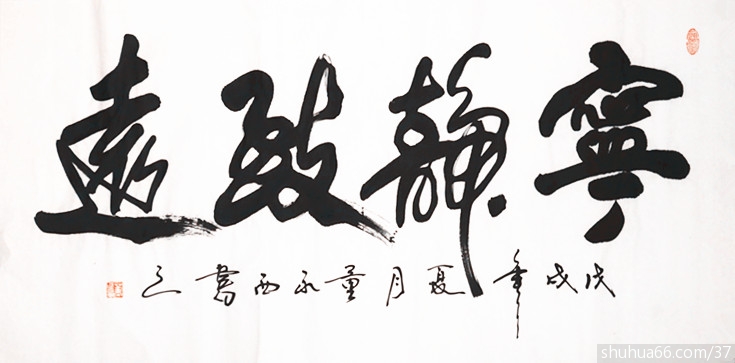 寧靜致遠
戊戌年夏月董永西書之
shuhua66.com/37